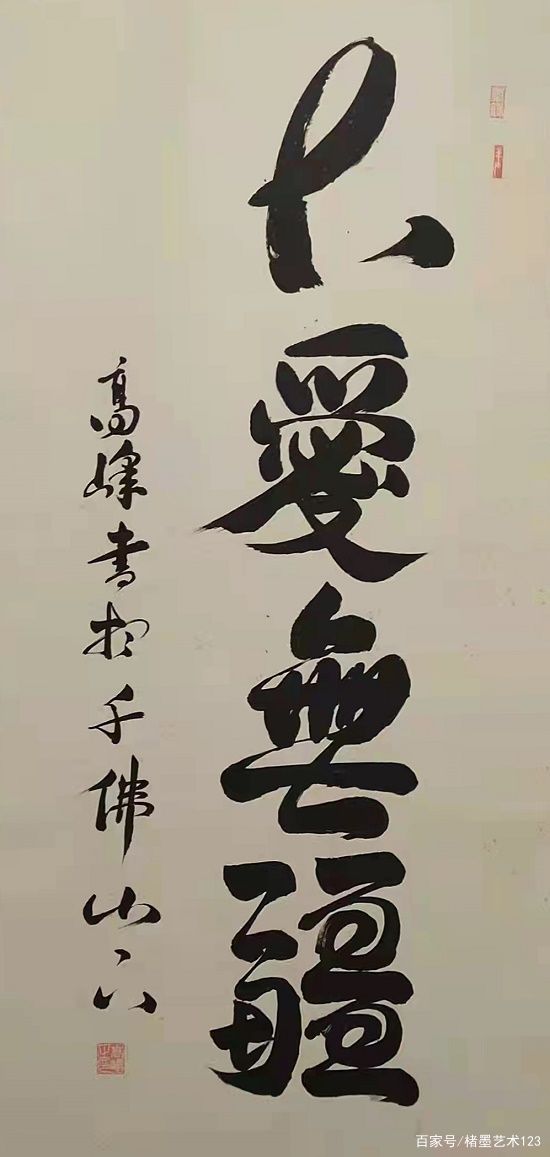 大愛無疆
高峰書於千佛山下
百家号/楮墨艺术123